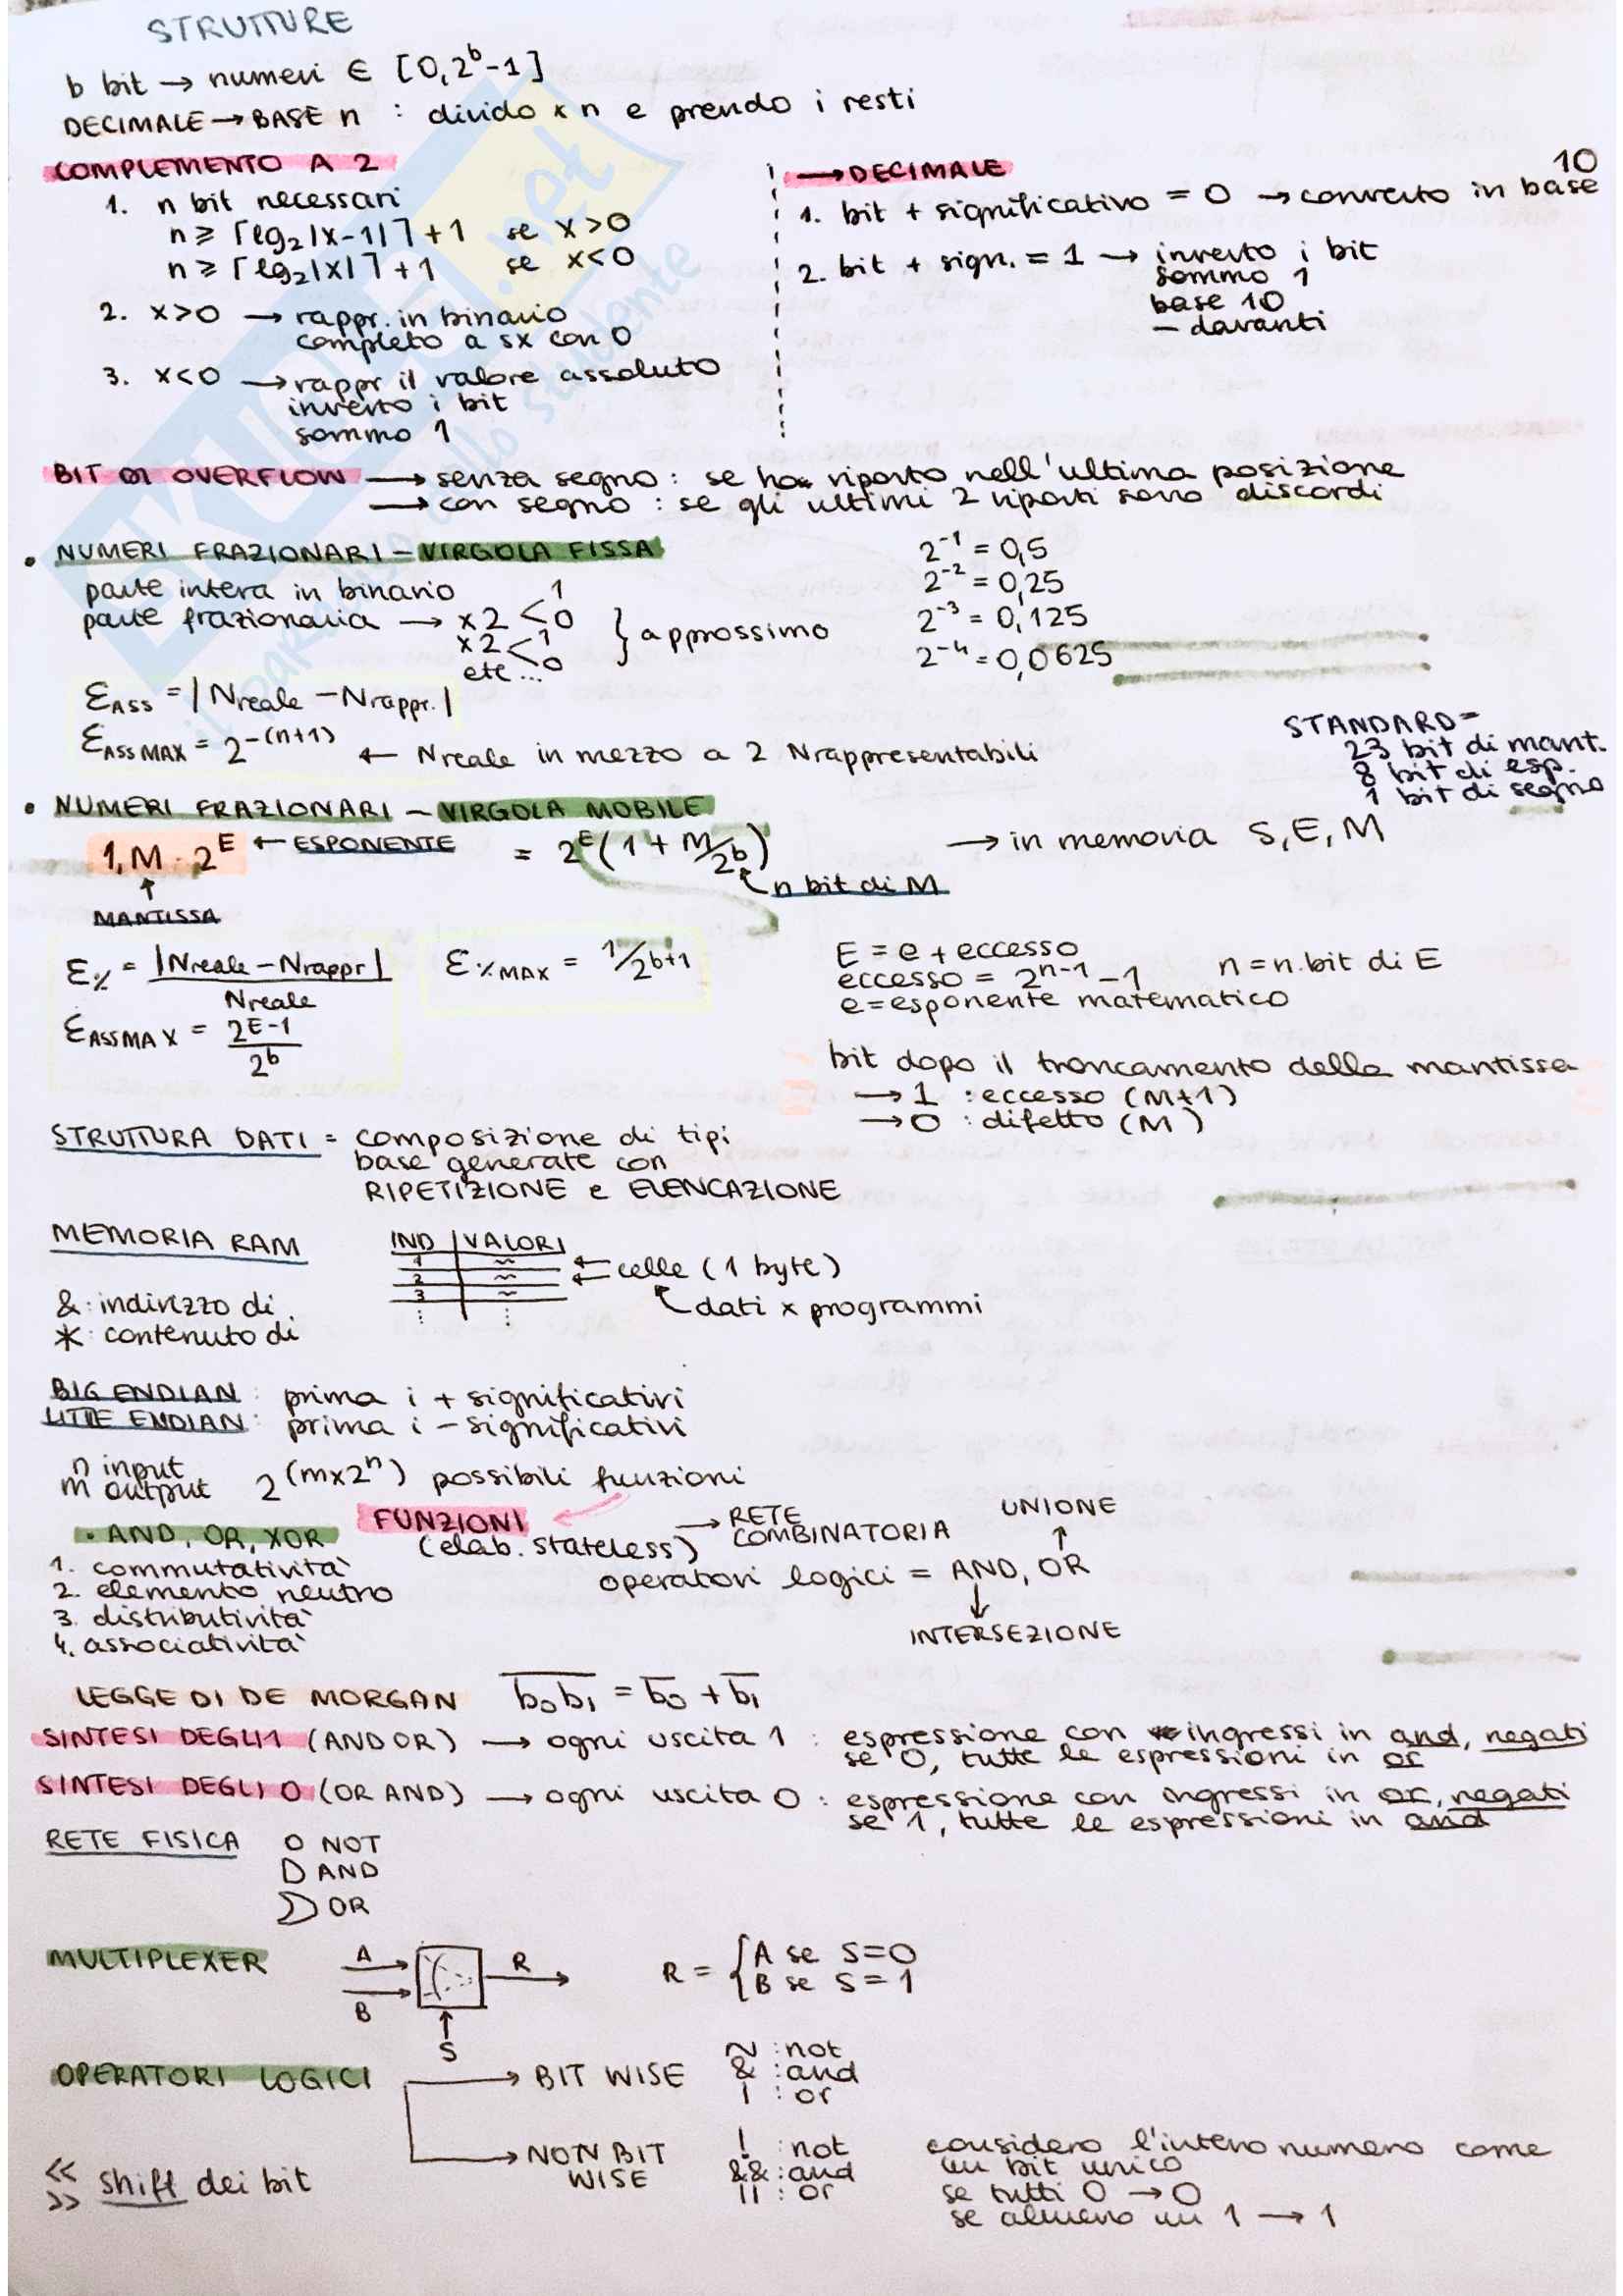 STRUTTURE
b bit → numeri ∈ [0, 2^b-1]
DECIMALE → BASE n : divido x n e prendo i resti
COMPLEMENTO A 2
1. n bit necessari
n ≥ ⌈lg₂|x-1|⌉ + 1 se x>0
n ≥ ⌈lg₂|x|⌉ + 1 se x<0
2. x>0 → rappr. in binario
completo a sx con 0
3. x<0 → rappr il valore assoluto
inverto i bit
sommo 1
→ DECIMALE
1. bit + significativo = 0 → converto in base 10
2. bit + sign. = 1 → inverto i bit
sommo 1
base 10
– davanti
BIT DI OVERFLOW → senza segno : se ho riporto nell'ultima posizione
→ con segno : se gli ultimi 2 riporti sono discordi
• NUMERI FRAZIONARI – VIRGOLA FISSA
parte intera in binario
parte frazionaria → x2 < 1 0
x2 < 1 0
etc...
} approssimo
2^-1 = 0,5
2^-2 = 0,25
2^-3 = 0,125
2^-4 = 0,0625
ε ASS = |Nreale – Nrappr.|
ε ASS MAX = 2^-(n+1) ← Nreale in mezzo a 2 Nrappresentabili
STANDARD =
23 bit di mant.
8 bit di esp.
1 bit di segno
• NUMERI FRAZIONARI – VIRGOLA MOBILE
1,M · 2^E ← ESPONENTE = 2^E (1 + M/2^b) → in memoria S, E, M
↑ n bit di M
MANTISSA
ε% = |Nreale – Nrappr| / Nreale
ε% MAX = 1/2^b+1
ε ASS MAX = 2^E-1 / 2^b
E = e + eccesso
eccesso = 2^n-1 – 1 n = n. bit di E
e = esponente matematico
bit dopo il troncamento della mantissa
→ 1 : eccesso (M+1)
→ 0 : difetto (M)
STRUTTURA DATI = composizione di tipi
base generate con
RIPETIZIONE e ELENCAZIONE
MEMORIA RAM
IND | VALORI
1
2
3
← celle (1 byte)
dati x programmi
& : indirizzo di
* : contenuto di
BIG ENDIAN : prima i + significativi
LITTLE ENDIAN : prima i – significativi
n input
m output 2^(m×2^n) possibili funzioni
FUNZIONI
(elab. stateless) → RETE
COMBINATORIA
UNIONE
↑
operatori logici = AND, OR
↓
INTERSEZIONE
• AND, OR, XOR
1. commutatività
2. elemento neutro
3. distributività
4. associatività
LEGGE DI DE MORGAN b̅₀b̅₁ = b̅₀ + b̅₁
SINTESI DEGLI 1 (AND OR) → ogni uscita 1 : espressione con ingressi in and, negati
se 0, tutte le espressioni in or
SINTESI DEGLI 0 (OR AND) → ogni uscita 0 : espressione con ingressi in or, negati
se 1, tutte le espressioni in and
RETE FISICA
O NOT
D AND
OR
MULTIPLEXER
A
B
R
S
R = { A se S=0
B se S=1
OPERATORI LOGICI → BIT WISE
~ : not
& : and
| : or
→ NON BIT
WISE
! : not
&& : and
|| : or
considero l'intero numero come
un bit unico
se tutti 0 → 0
se almeno un 1 → 1
<<
>> shift dei bit
SKUOLA.net
il paradiso dello studente